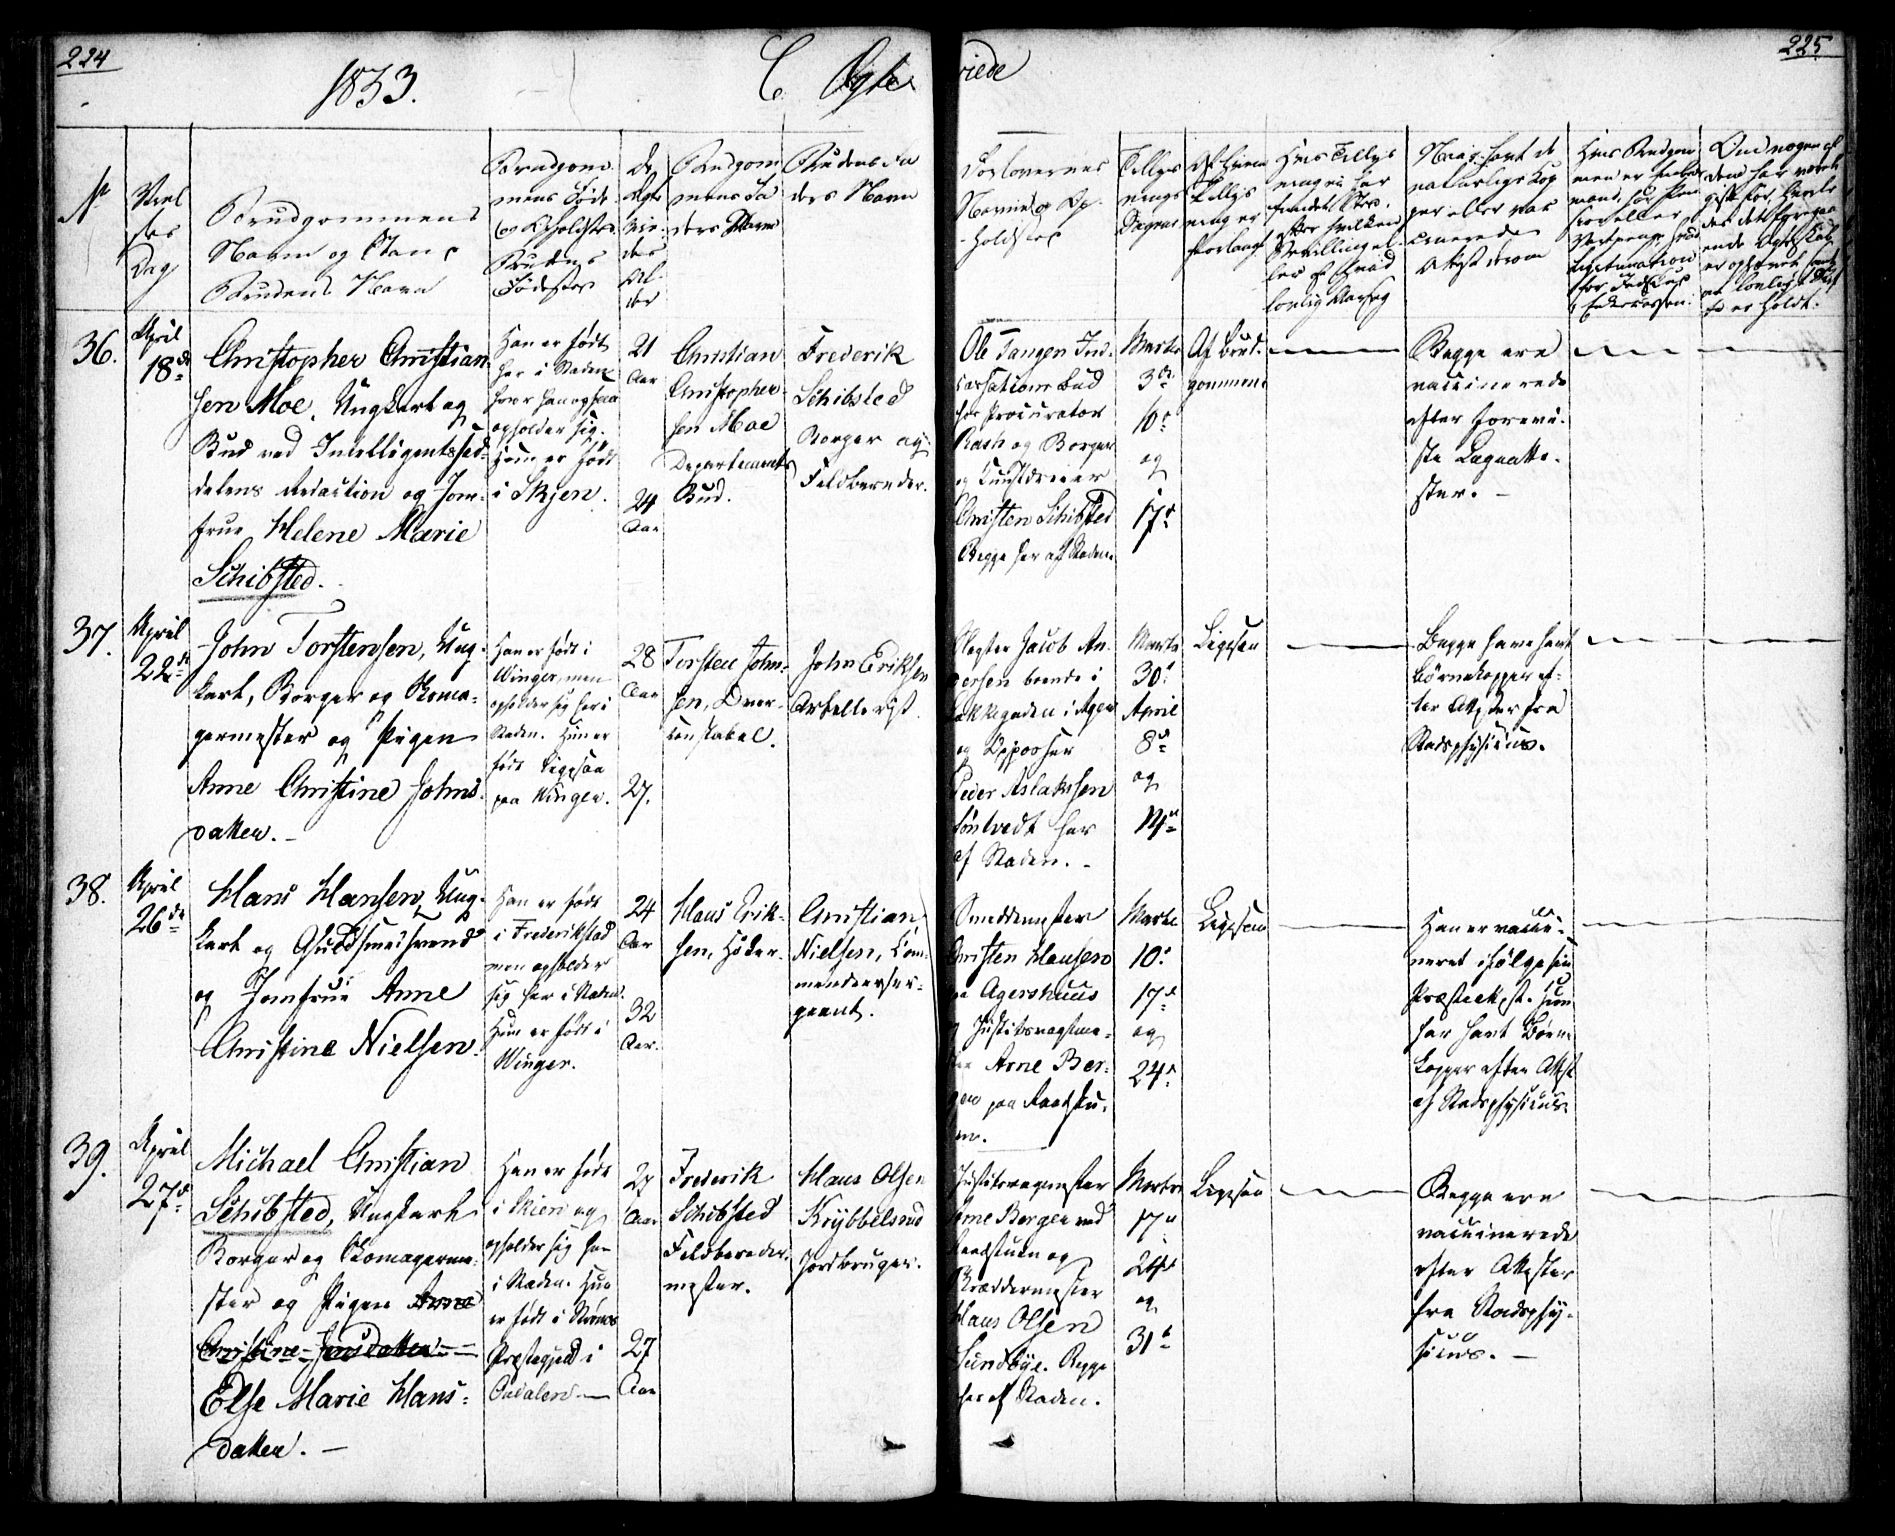 224
1833.
C Ægte
viede
225
No
Viel
ses
Dag
Brudgommens
Navn og Stand
Brudens Navn
Brudgom
mens Føde
og Opholdsted
Brudens
Fødested
De
Ægte
vie-
des
Al-
der
Brudgom
mens Fa
ders Navn
Brudens Fa
ders Navn
Forlovernes
Navne og Op-
holdsted
Tillys
nings
Dagene
Af hvem
Tillys
ning er
forlangt
Hvis Tillys
ning ei har
fundet Sted,
efter hvilken
Bevilling el-
ler af hvad
lovlig Aarsag
Naar havt de
naturlige Kop
per eller vac
cinerede
Attest derom
36.
April
18de
Christopher Christian-
sen Moe, Ungkarl og
Bud ved Intelligentssed-
delens Redaction og Jom-
frue Helene Marie
Schibsted.
Han er født
her i Staden
hvor han ogsaa
opholder sig.
Hun er født
i Skjen.
21
Aar
24
Aar
Christian
Christopher-
sen Moe
Departements
Bud.
Frederik
Schibsted
Borger og
Feldbereder.
Ole Tangen Ind-
cassations Bud
hos Procurator
Rash og Borger
og Kunstdreier
Christen Schibsted
Begge her af Staden
Marts
3de
10de
og
17de
Af Brud-
gommen
Begge ere
vaccinerede
efter forevi-
ste Lægeatte-
ster. —
37.
April
22de
John Torstensen, Ung-
karl, Borger og Skoma-
germester og Pigen
Anne Christine Johns-
datter. —
Han er født i
Winger, men
opholder sig her i
Staden. Hun er
født ligesaa
paa Winger.
28
Aar
27.
Torsten John-
sen, Over-
konstabel.
John Eriksen
Artellerist.
Slagter Jacob An-
dersen boende i
Lakkegaden i Ager
og Opposser
Peder Aslaksen
Søntvedt her
af Staden. —
Marts
30te
April
8de
og
14de
Ligesaa
Begge have havt
Børnekopper ef-
ter Attester fra
Stadsphysicus.
38.
April
26de
Hans Hansen, Ung-
karl og Guldsmedsvend
og Jomfrue Anne
Christine Nielsen.
Han er født
i Frederikstad
men opholder
sig her i Staden.
Hun er født i
Winger.
24
Aar
32
Aar.
Hans Erik-
sen, Høker.
Christian
Nielsen, Com-
mandeerser-
geant.
Smeddemester
Christen Hansen
paa Agershuus
og Justitsvagtme-
ster Arne Ber-
gen paa Raadstu-
en.
Marts
10de
17de
og
24de
Ligesaa
Han er vacci-
neret ifølge sin
Præsteatt. Hun
har havt Børne
kopper efter Attest
af Stadsphysicus.
39.
April
27de
Michael Christian
Schibsted, Ungkarl
Borger og Skomagerme-
ster og Pigen Anne
Christine Jensdatter
Else Marie Hans-
datter. —
Han er født
i Skien og
opholder sig her
i Staden. Hun
er født i Strøms
Præstegjeld i
Oudalen —
27
Aar
27
Aar
Frederik
Schibsted
Feldbereder-
mester.
Hans Olsen
Krybbelsrud
Jordbruger.
Justitsvagmester
Arne Bergen ved
Raadstuen og
Skræddermester
Hans Olsen
Sundbye. Begge
her af Staden.
Marts
17de
24de
og
31te
Ligesaa
Begge ere
vaccinerede
efter Attester
fra Stadsphy-
sicus. —